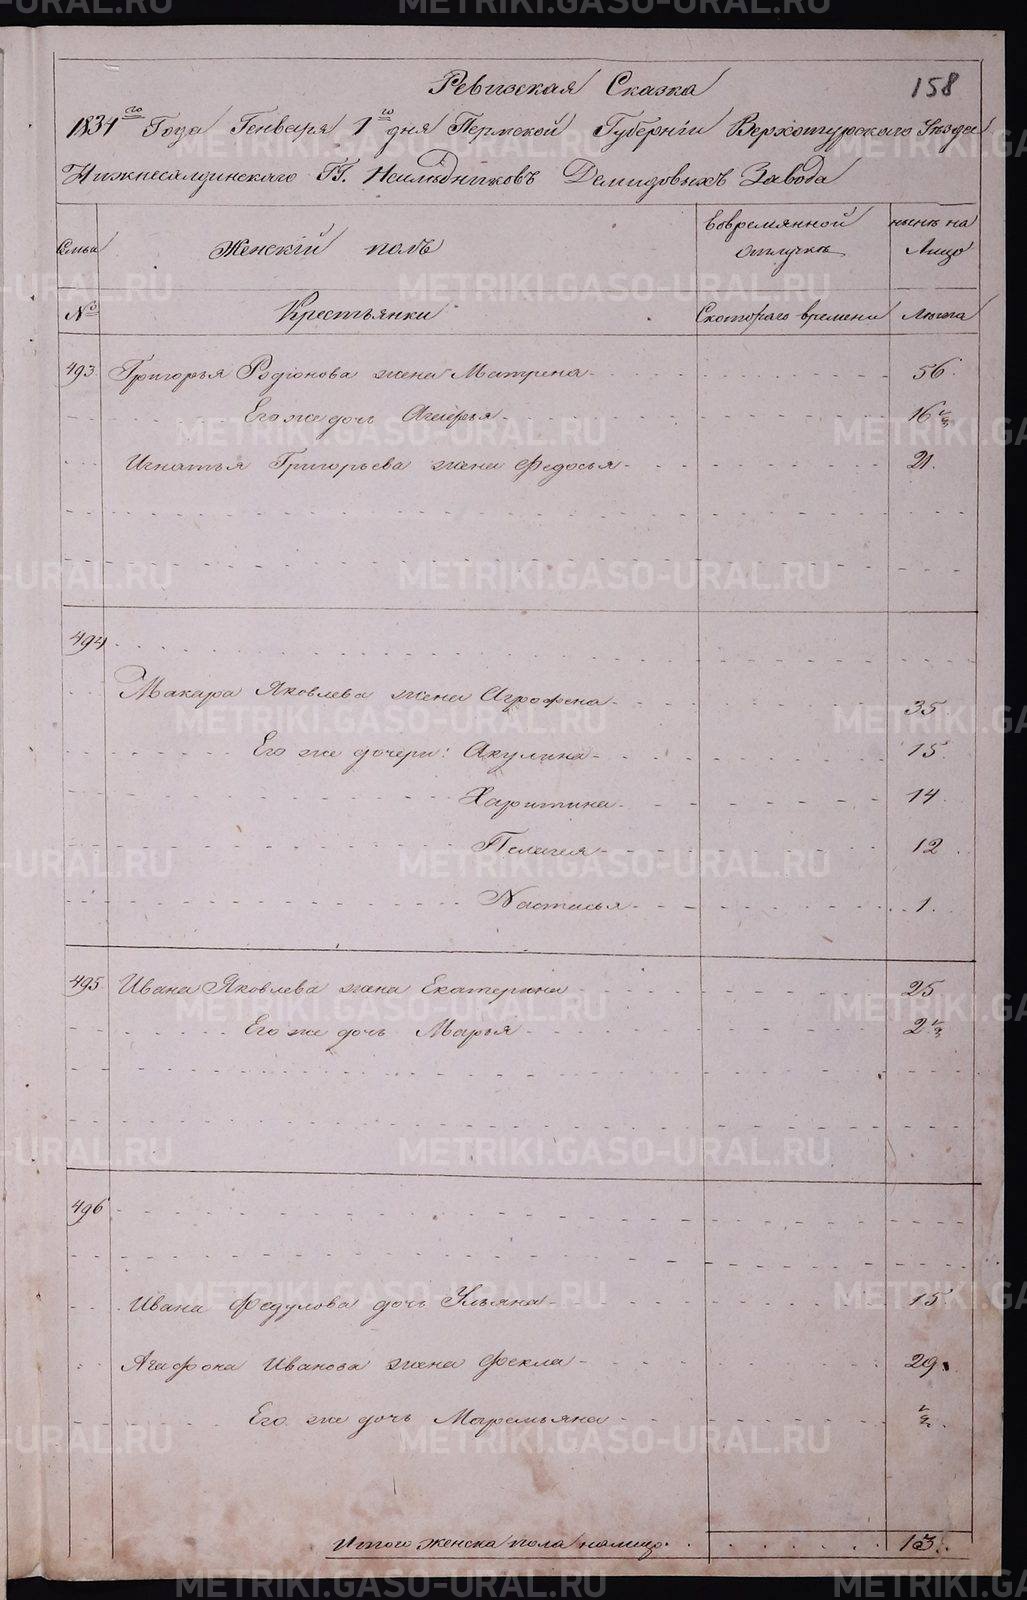 158
Ревизская Сказка
1834го Года Генваря 1го дня Пермской Губернiи Верхотурскаго Уѣзда
Нижнесалдинскаго ГГ. Наслѣдниковъ Демидовыхъ Завода
Семьи Женскiй полъ Вовремянной отлучкѣ нынѣ на Лицо
№ Крестьянки Скотораго времени Лѣта
493 Григорья Родiонова жена Матрена 56.
Его же дочь 16 1/2
Игнатья Григорьева жена Федосья 21.
494
Макара Яковлева жена Агрофена 35
Его же дочери: Акулина 15.
Харитина 14.
Пелагея 12.
Настасья 1.
495 Ивана Яковлева жена Екатерина 25
Его же дочь Марья 2 1/2
496
Ивана Федулова дочь Ульяна 15.
Агафона Иванова жена Фекла 29.
Его же дочь Маремьяна 1/2.
Итого женска пола налицо 13.
METRIKI.GASO-URAL.RU